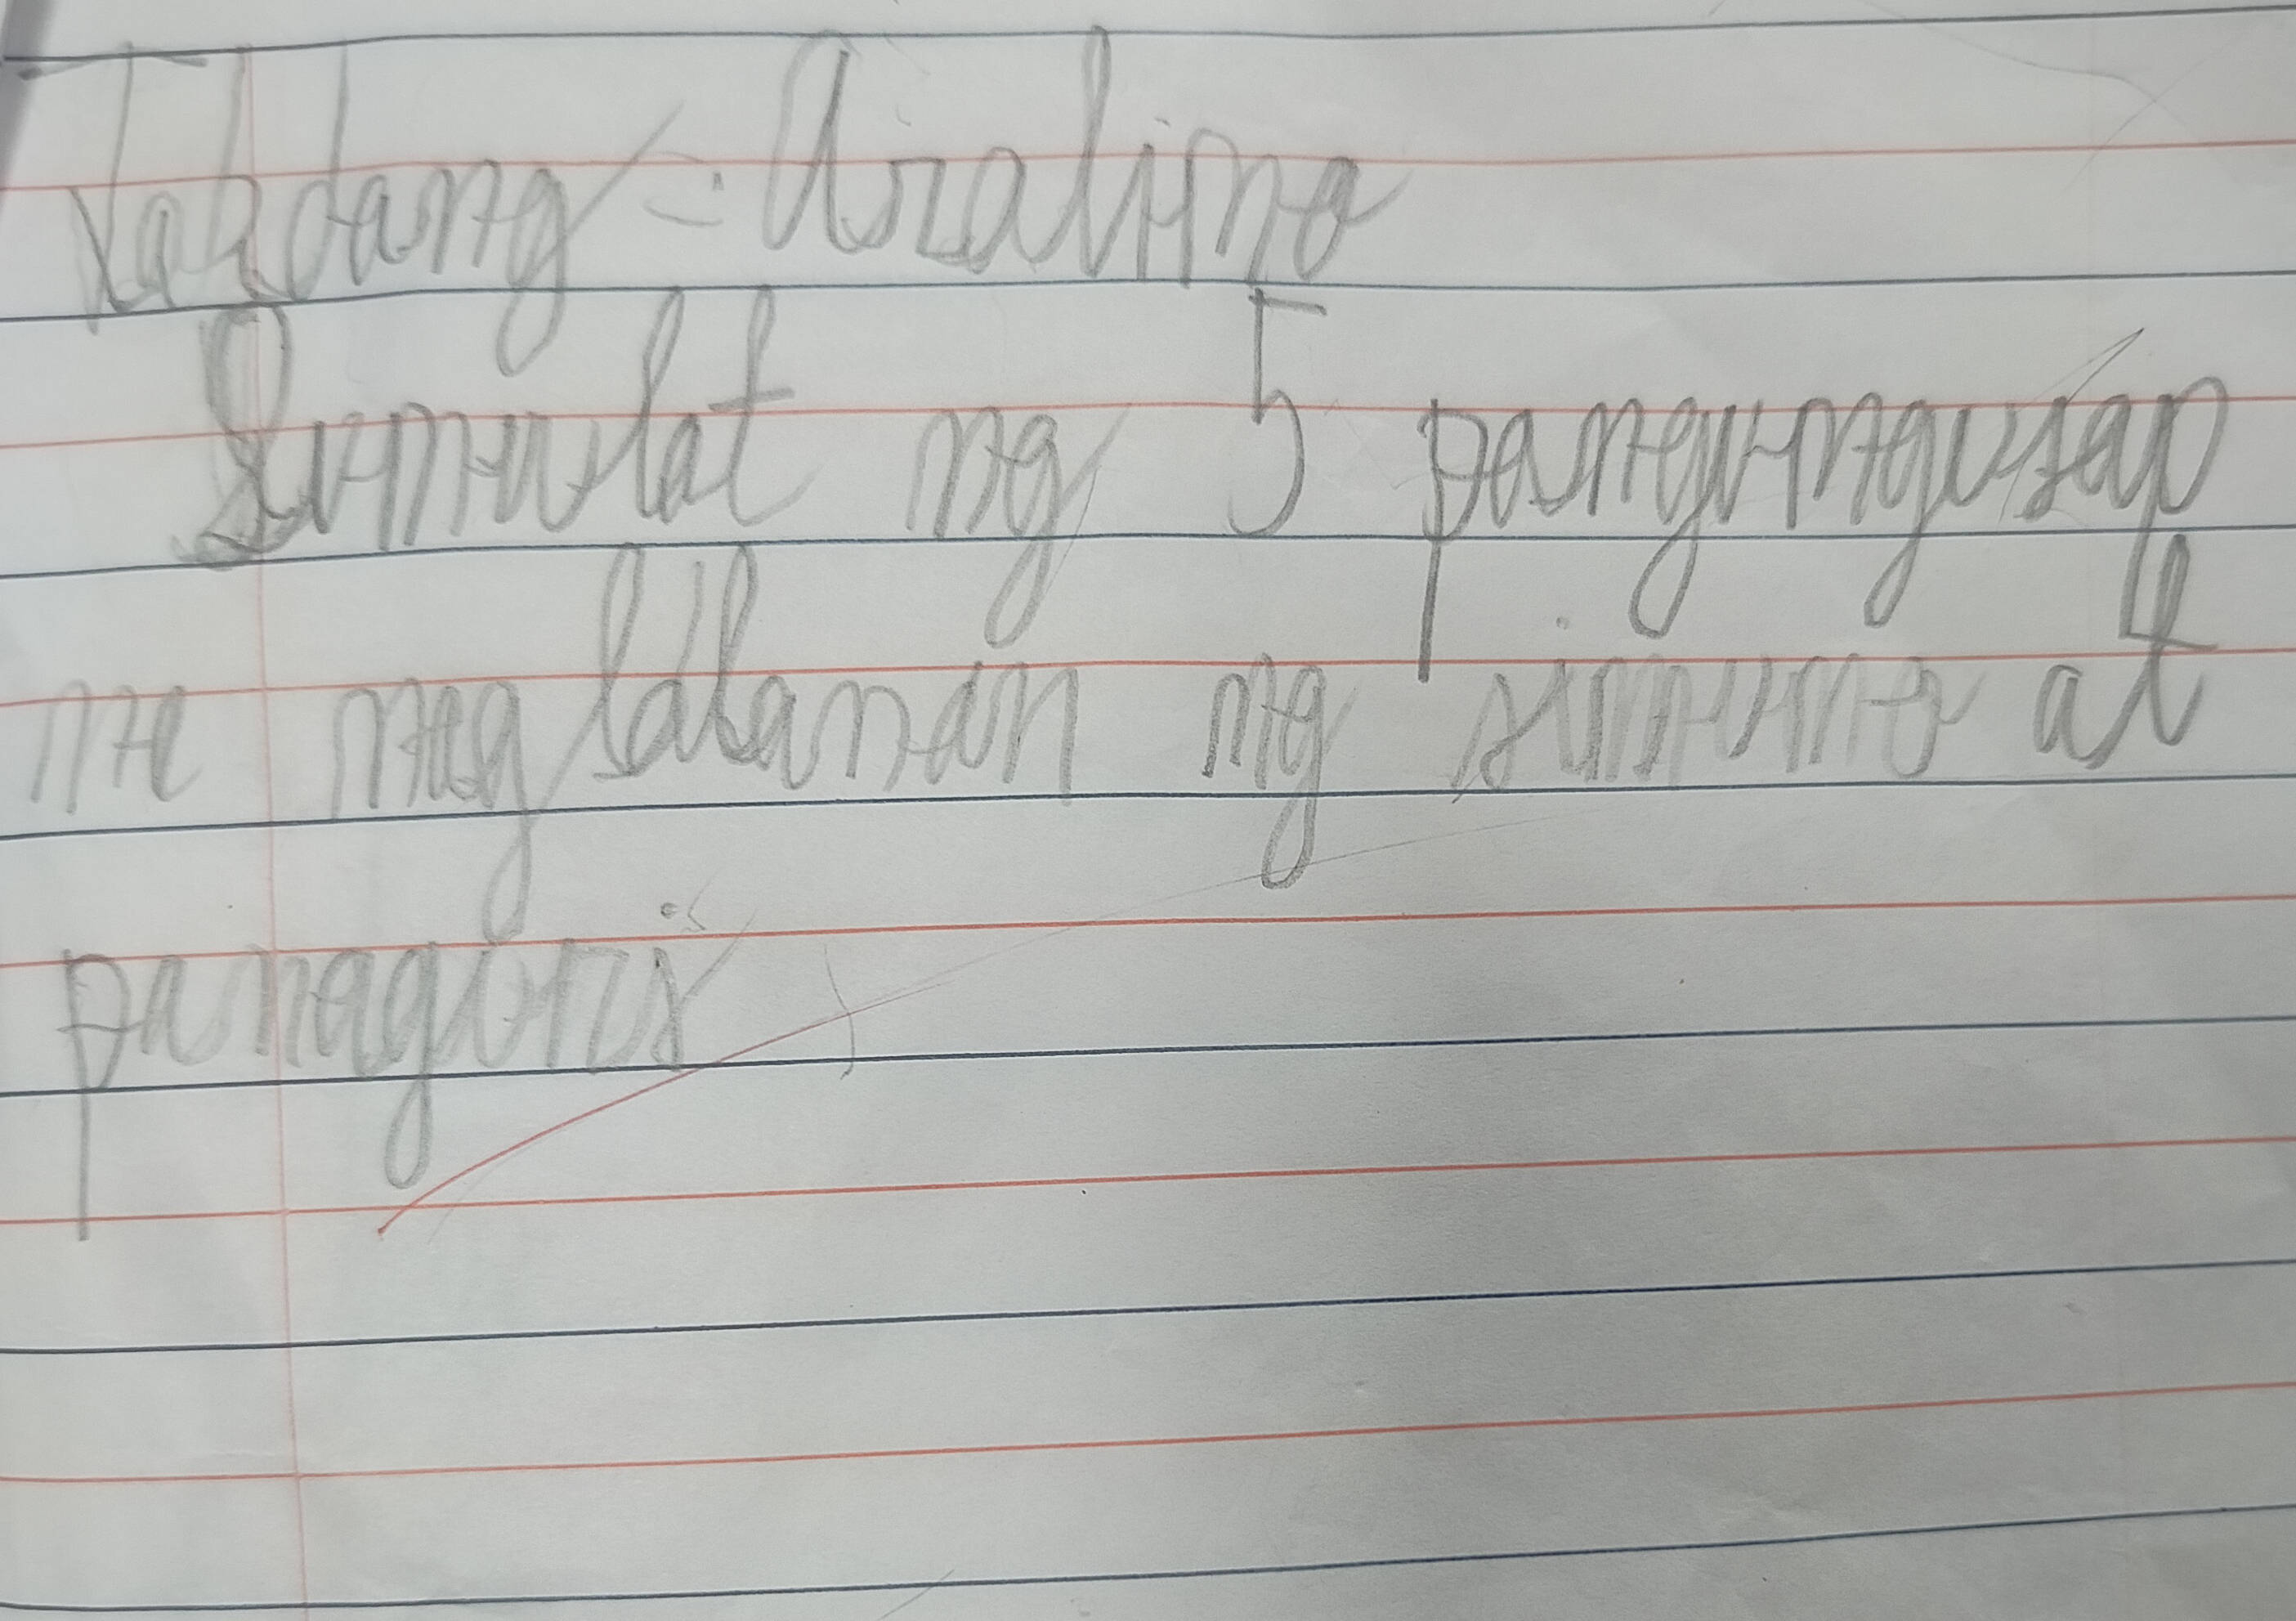 Takdang - Aralina
Sumulat ng 5 pangungusap
na naglalaman ng simuno at
panaguris